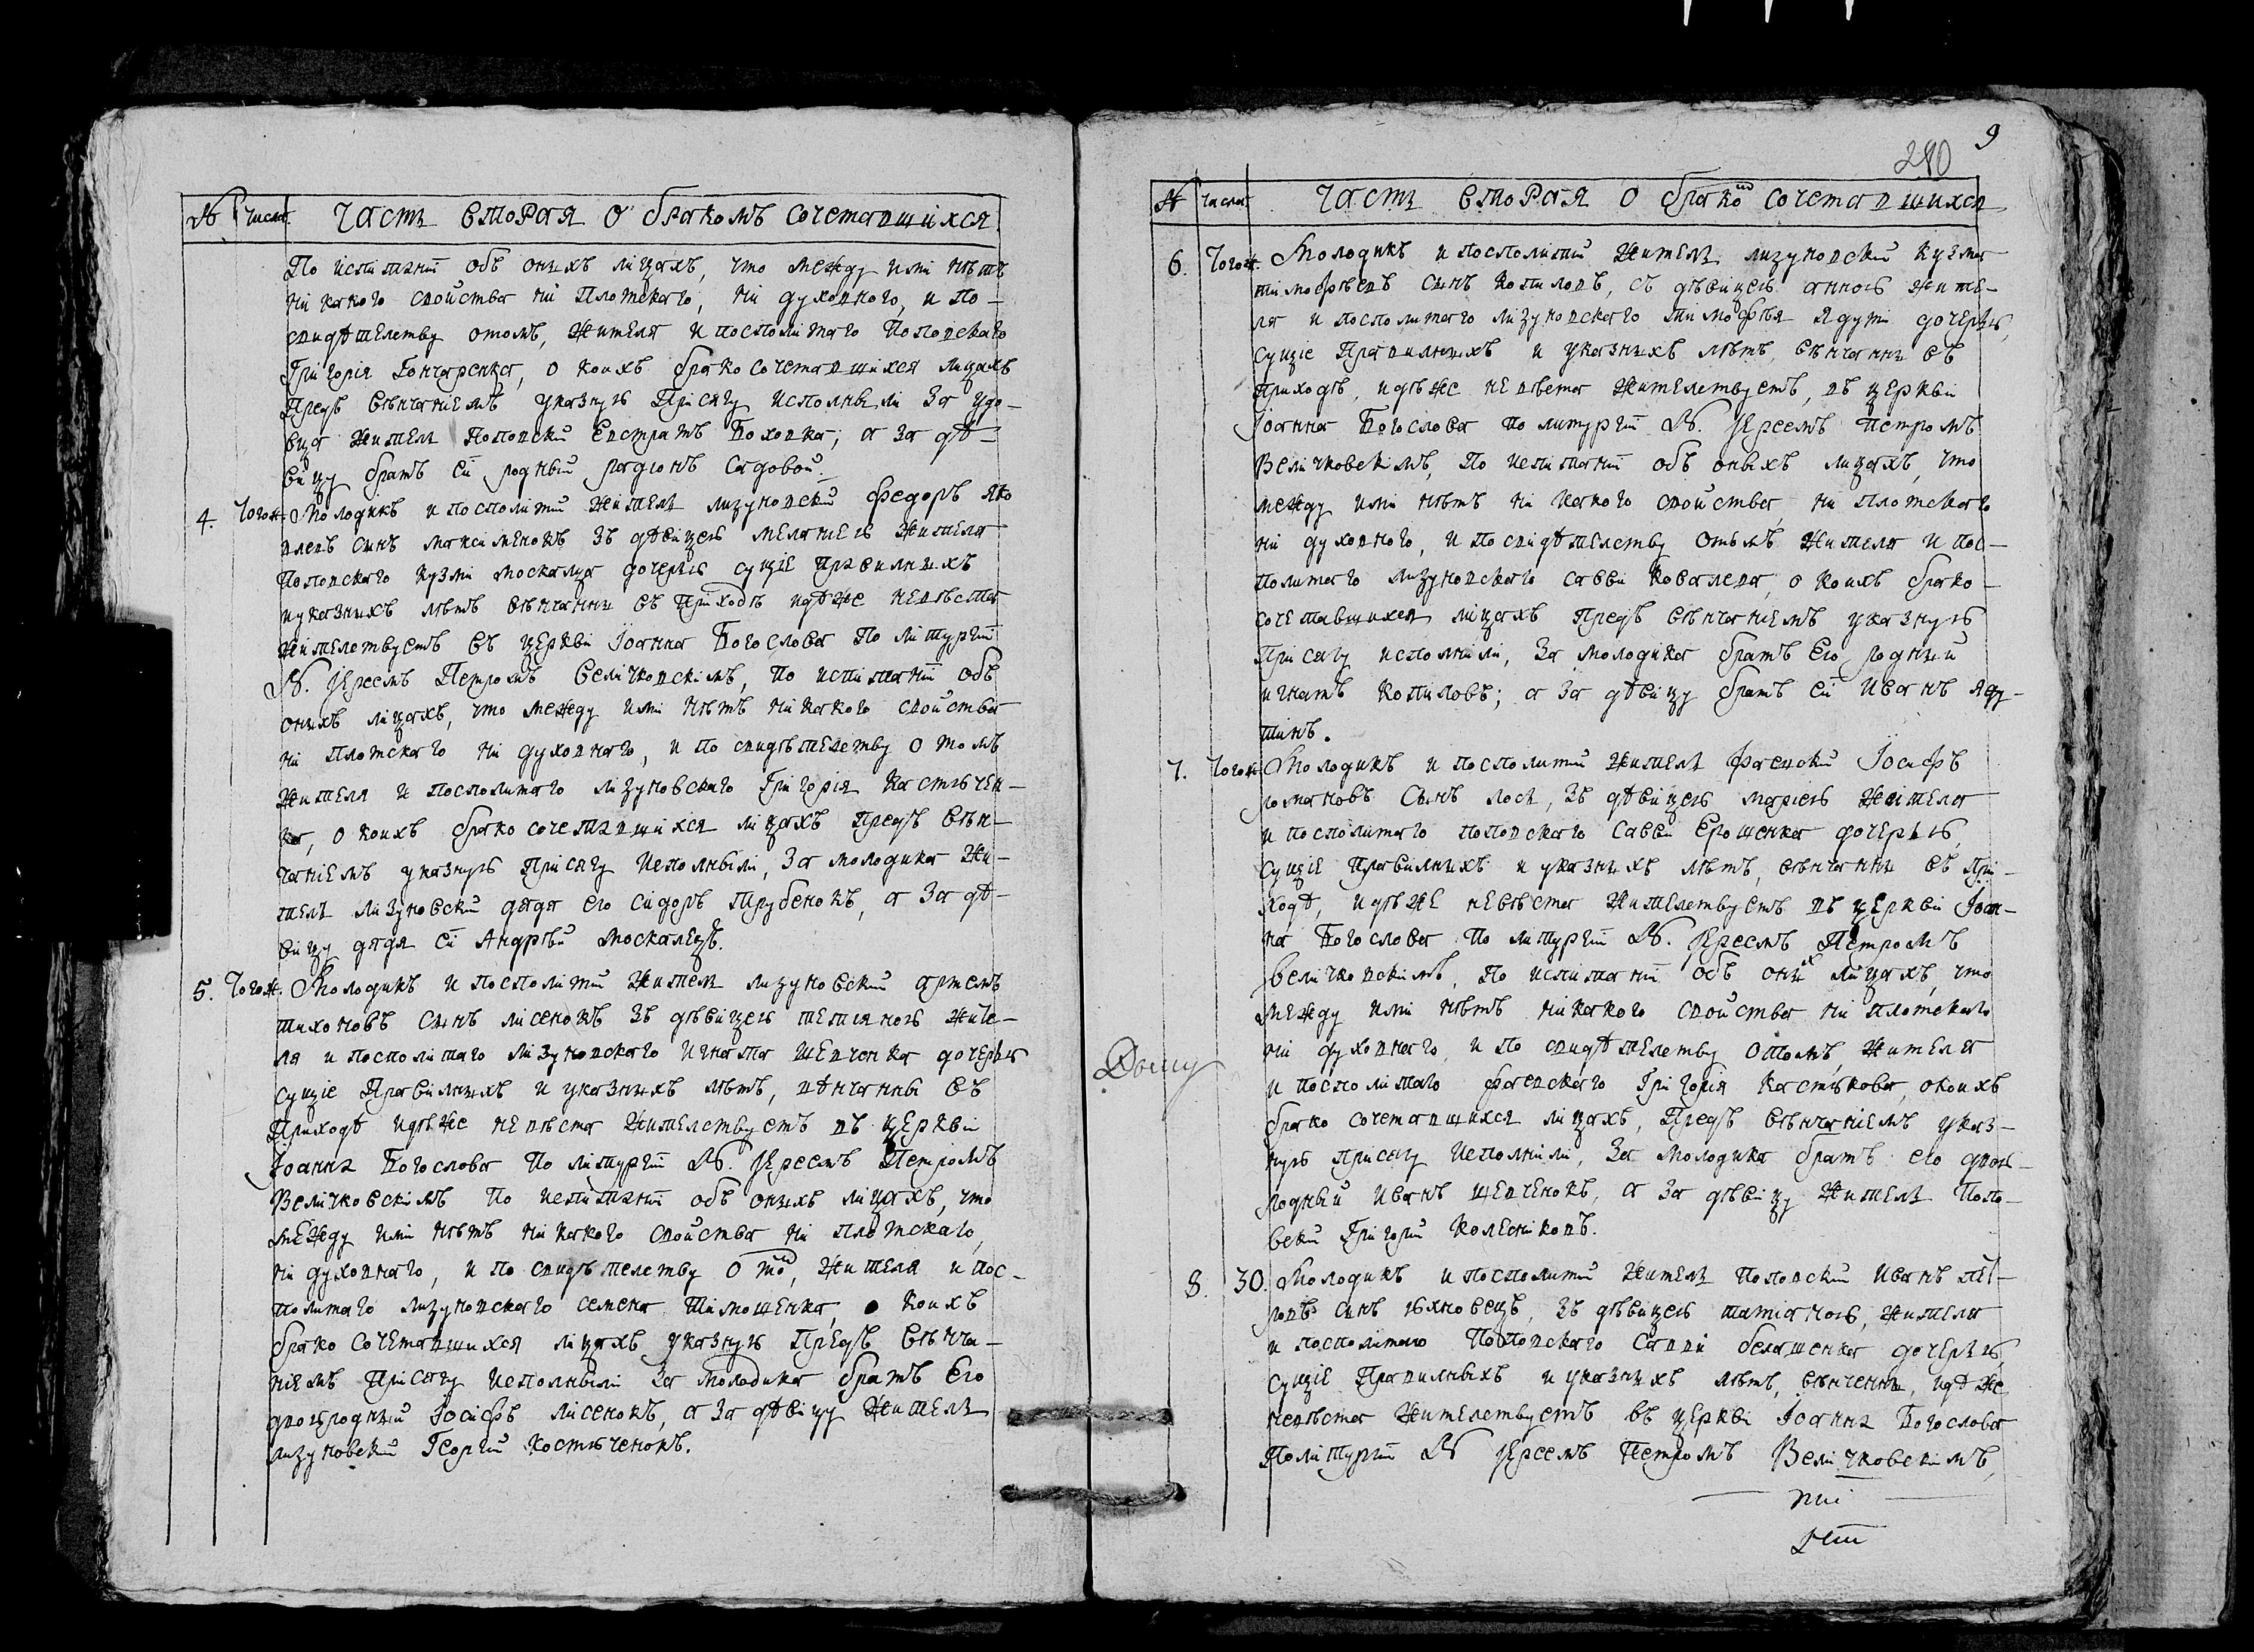 № Число. Часть вторая о бракомъ сочетавшихся.
По испитаніи объ онихъ лицахъ, что между ими нѣтъ
ни какого свойства ни плотскаго, ни духовнаго, и по-
свидѣтелству отомъ, жителя и посполитаго поповскаго
Григорія Гончаренка, о коихъ бракосочетавшихся лицахъ
предъ вѣнчаніемъ указную присягу исполныли за удо-
вца жителъ поповски Евстратъ ; а за дѣ-
вицу братъ ей родный радіонъ Садовой.
4. Тогож. Молодикъ и посполитий жителъ лизуновски федоръ Яко
влевъ синъ максименокъ зъ дѣвицею меланіею жителя
поповскаго кузми москалца дочерью сущіе правилнихъ
иуказнихъ лѣтъ вѣнчанни въ приходѣ идѣже невѣста
жителствуетъ въ церкви Іоанна Богослова по литургіи
№. Іереемъ Петромъ величковскимъ, по испитаніи объ
онихъ лицахъ, что между ими нѣтъ никакого свойства
ни плотскаго ни духовнаго, и по свидѣтелству о томъ
жителя и посполитаго лизуновскаго Григорія Костючен-
ка, о коихъ бракосочетавшихся лицахъ предъ вѣн-
чаніемъ указную присягу исполныли, за молодика жи-
телъ лизуновски дядя его сидоръ трубенокъ, а за дѣ-
вицу дядя ей Андрѣй москалецъ.
5. Тогож. Молодикъ и посполити жителъ лизуновский артемъ
тихоновъ синъ лисенокъ зъ дѣвицею тетяною жите-
ля и посполитаго лизуновскаго игната шевченка дочерью
сущіе правилнихъ и указнихъ лѣтъ, вѣнчанны въ
приходѣ идѣже невѣста жителствуетъ въ церкви
Іоанна Богослова по литургіи №. Іереемъ Петромъ
Величковскимъ по испитаніи объ онихъ лицахъ, что
между ими нѣтъ никакого свойства ни плотскаго,
ни духовнаго, и по свидѣтелству о томъ, жителя и пос-
политаго лизуновскаго семена тимошенка, о коихъ
бракосочетавшихся лицахъ указную предъ вѣнча-
ніемъ присягу исполныли за молодика братъ его
двоюродний Іосифъ лисенокъ, а за дѣвицу жителъ
лизуновский Георгий Костюченокъ.
Дому
280
9
№ Числа. Часть вторая о бракомъ сочетавшихся
6. Тогож. Молодикъ и посполитий жителъ лизуновский кузма
тимофѣевъ синъ копиловъ, съ дѣвицею анною жите-
ля и посполитаго лизуновскаго тимофѣя Ядути дочерью,
сущіе правилнихъ и указнихъ лѣтъ, вѣнчанни въ
приходѣ, идѣже невѣста жителствуетъ, въ церкви
Іоанна Богослова по литургіи №. Іереемъ петромъ
Величковскимъ, по испитаніи объ онихъ лицахъ, что
между ими нѣтъ ни какого свойства, ни плотскаго
ни духовного, и по свидѣтелству отомъ жителя и пос-
политаго лизуновскаго саввы Ковалева, о коихъ брако-
сочетавшихся лицахъ предъ вѣнчаніемъ указную
присягу исполнили, за молодика братъ его родний
игнатъ копиловъ; а за дѣвицу братъ ей Иванъ Яду-
тинъ.
7. Тогож. Молодикъ и посполитий жителъ фаевский Іосифъ
романовъ синъ лося, зъ дѣвицею маріею жителя
и посполитаго поповскаго Саввы Ерошенка дочерью,
сущіе правилнихъ и указнихъ лѣтъ, вѣнчанни въ при-
ходѣ, идѣже невѣста жителствуетъ въ церкви Іоан-
на Богослова по литургіи №. Іереемъ Петромъ
величковскимъ, по испитаніи объ онихъ лицахъ, что
между ими нѣтъ никакого свойства ни плотскаго
ни духовнаго, и по свидѣтелству отомъ, жителя
и посполитаго фаевскаго Григорія Костюкова, окоихъ
бракосочетавшихся лицахъ, предъ вѣнчаніемъ указ-
ную присягу исполнили, за молодика братъ его двою-
родный Иванъ шевченокъ, а за дѣвицу жителъ попо-
вски Григорий Колесниковъ.
8. 30. Молодикъ и посполитий жителъ поповский Иванъ пет-
ровъ синъ юхновецъ, зъ дѣвицею татіаною, жителя
и посполитаго поповскаго Саввы белашенка дочерью,
сущіе правилныхъ и указнихъ лѣтъ, вѣнченни, идѣже
невѣста жителствуетъ въ церкви Іоанна Богослова
политургіи № Іереемъ Петромъ Величковскимъ,